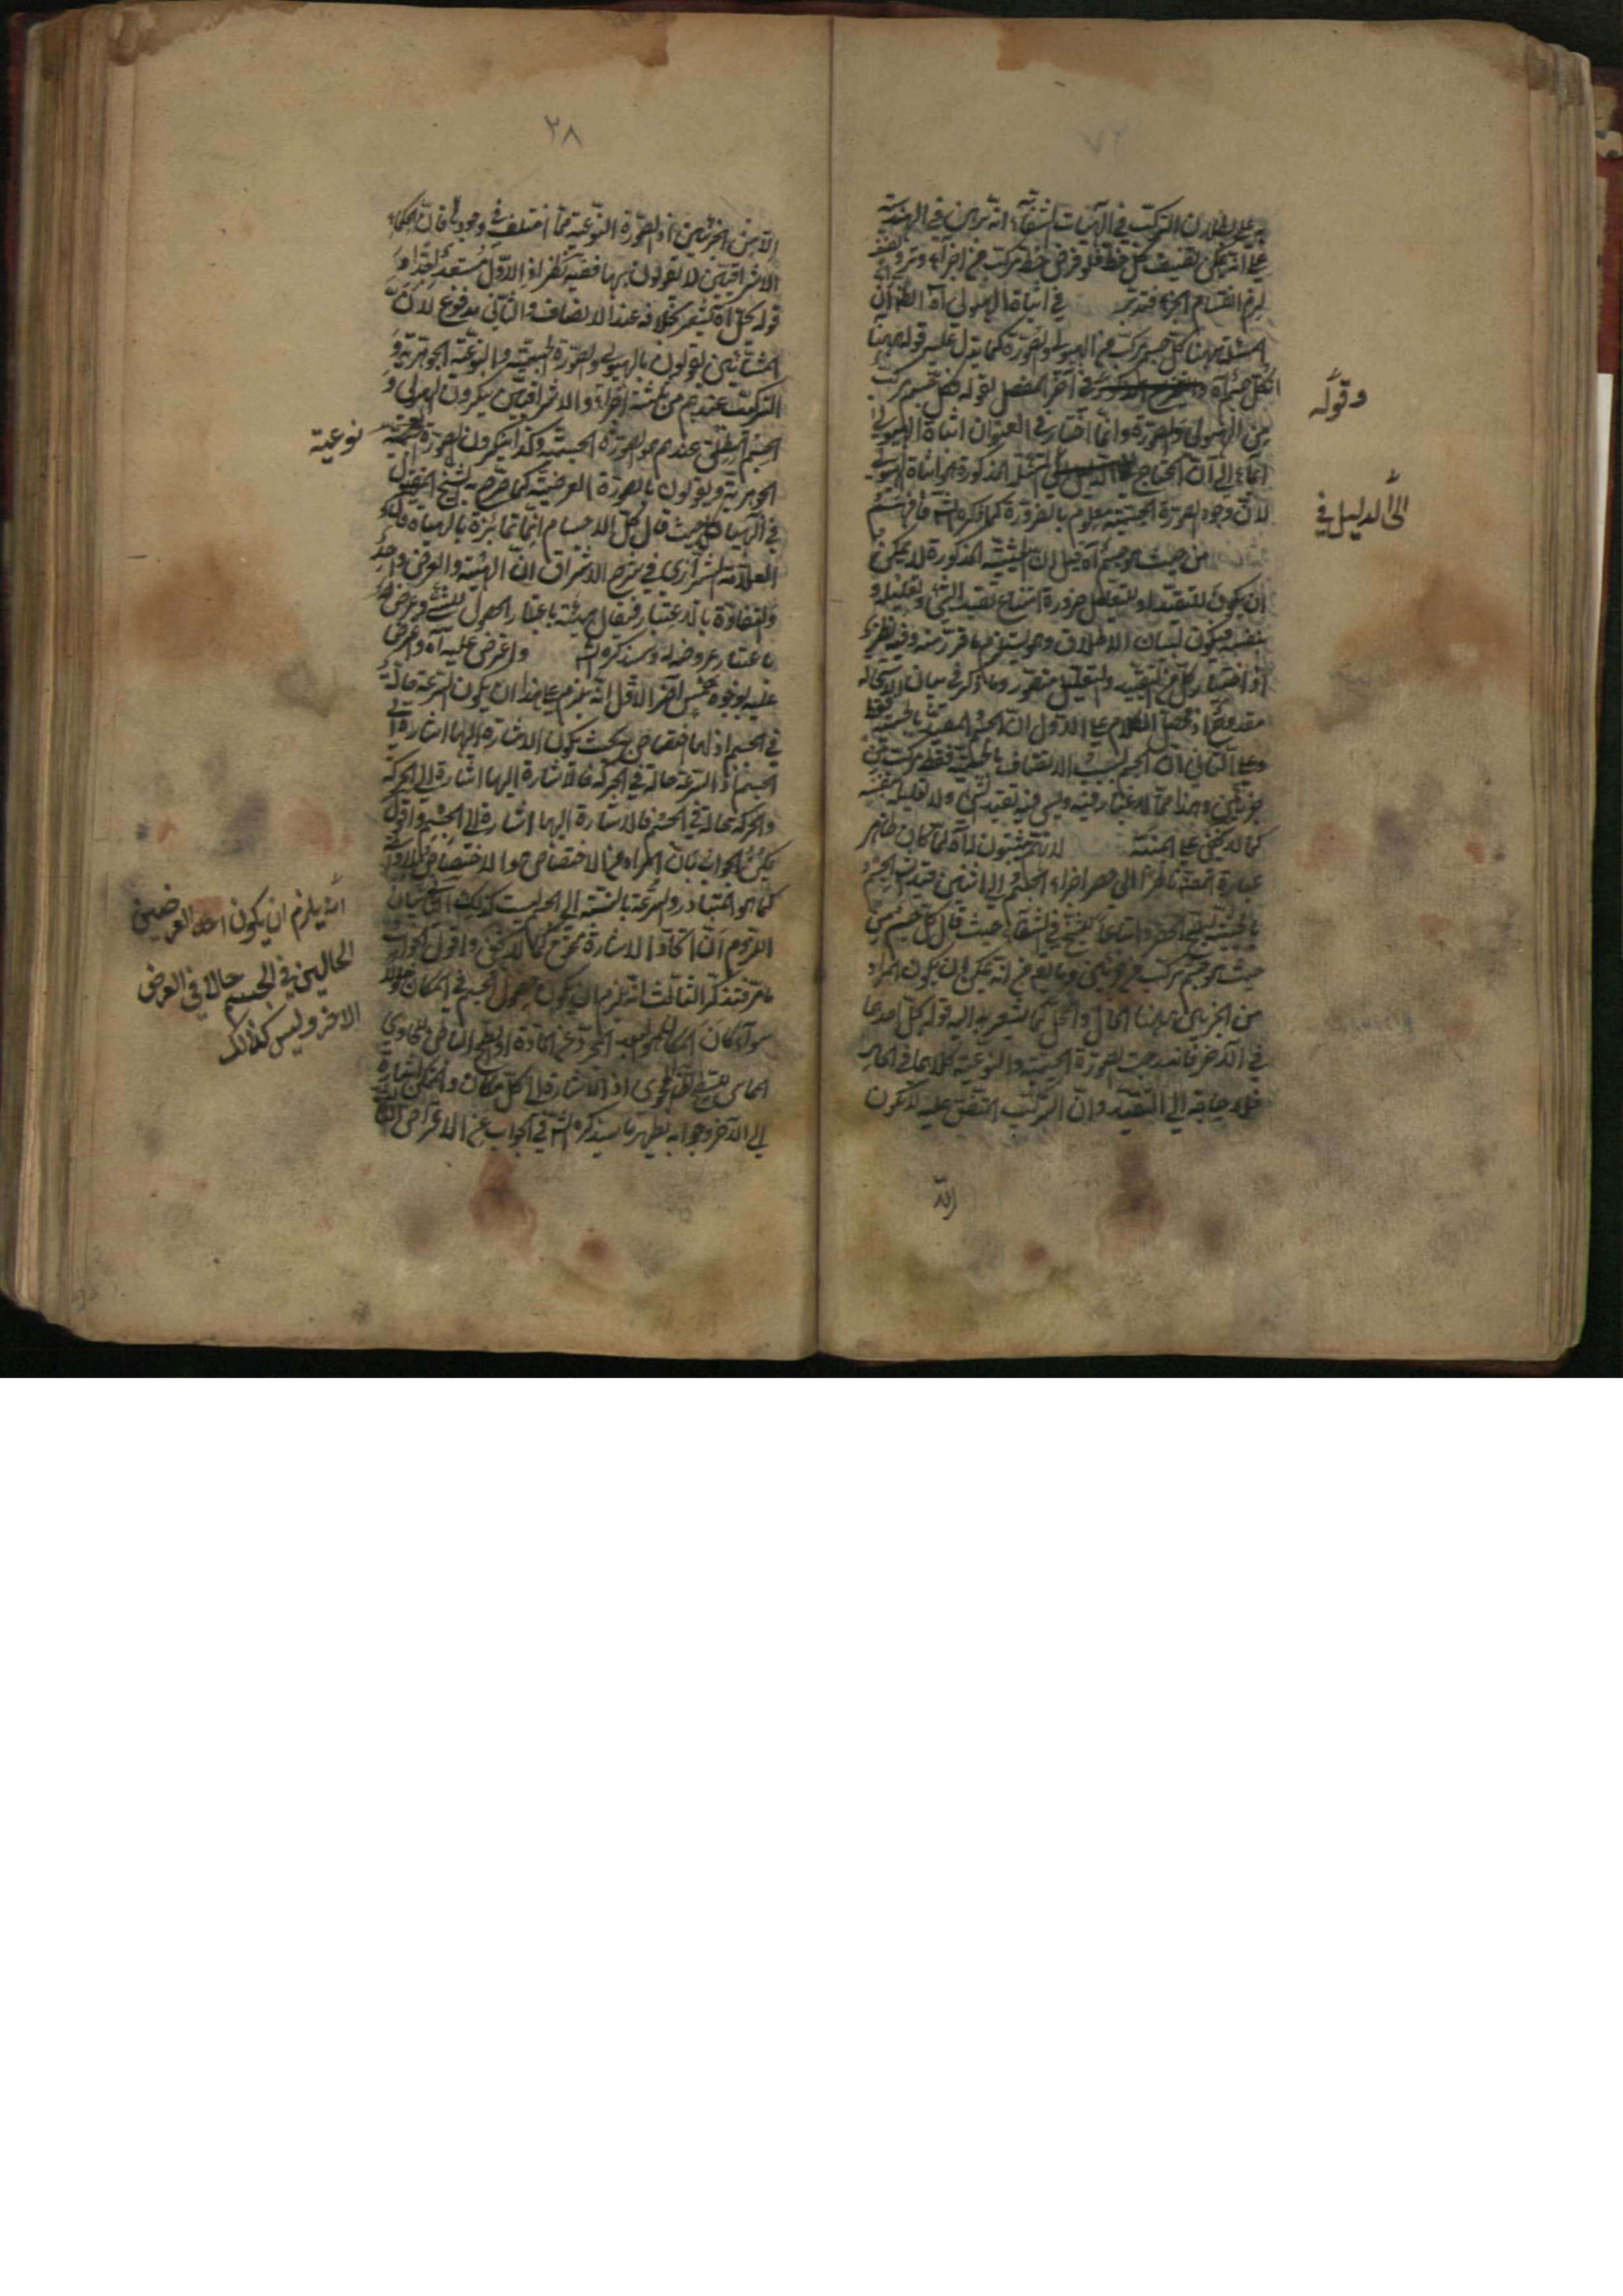 به على بطلان التركب في الهيات الشفاء انه برهن في الهندسة
على انه يمكن تنصيف كل خط فلو فرض خط مركب من اجزاء وتر
لزم انقسام الجزء فتدبر في اثبات الهيولى اه الظ ان
المسئلة ههنا كل جسم مركب من الهيولى والصورة كما يدل عليه قوله ههنا
ان كل جسم اه في آخر الفصل لقوله فكل جسم مركب
وقوله
من الهيولى والصورة وانما اختار في العنوان اثبات الهيولى
ايماء الى ان المحتاج المسئلة المذكورة هو اثبات الهيولى
الى الدليل في
لان وجود الصورة الجسمية معلوم بالضرورة كما ذكره الش فافهم
من حيث هو جسم اه قيل ان الحيثية المذكورة لا يمكن
ان يكون للتقييد او للتعليل ضرورة امتناع تقييد الشئ وتعليله
بنفسه فيكون لبيان الاطلاق وفيه نظر
اذ اختيار كل من التقييد والتعليل متصور وما ذكر في بيان الاستحالة
مقدوح اذ محصل الكلام على الاول ان الجسم المقيد بالجسمية فقط
وعلى الثاني ان الجسم بسبب الاتصاف بالجسمية فقط مركب من
جزئين وهذا مما لا غبار فيه وليس فيه تقييد الشئ ولا تعليله بنفسه
كما لا يخفى على لانهم يثبتون اه لما كان ظاهر
عبارة المصنف ناظرا الى حصر اجزاء الجسم في اثنين قيد الش الجسم
بالحيثية ليصح الحصر واتباعا للشيخ في الشفاء حيث قال كل جسم من
حيث هو جسم مركب من جزئين يمكن ان يكون المراد
من الجزئين ههنا الحال والمحل كما يشعر به اليه قوله كل احدهما
في الآخر فاندرجت الصورة الجسمية والنوعية كلاهما في الحال
فلا حاجة الى التقييد وان التركيب المتفق عليه لا يكون
الا
٢٨
الا من الجزئين اذ الصورة النوعية مما اختلف في وجوده فان الحكماء
الاشراقيين لا يقولون بها ففيه نظر اذ الاول مستبعد جدا
قوله يحل اه يشعر بخلافه عند الانصاف والثاني مدفوع لان
المشائين يقولون بالهيولى والصورة الجسمية والنوعية الجوهرية و
التركيب عندهم من ثلثة اجزاء والاشراقيين ينكرون الهيولى و
الجسم المطلق عندهم هو الصورة الجسمية وكذا ينكرون الصورة
نوعية
الجوهرية ويقولون بالصورة العرضية كما صرح به الشيخ المقتول
في الهياكل حيث قال كل الاجسام انما تمايزة بالهيئات وقال
العلامة الشيرازي في شرح الاشراق ان الهيئة والعرض واحد
والتفاوت بالاعتبار فيقال هيئة باعتبار الحصول للشئ وعرض
باعتبار عروضه له وسيذكره الش واعترض عليه اه واعترض
عليه بوجوه خمس اخر الاول انه يلزم على هذا ان يكون السرعة حالة
في الجسم اذ لها اختصاص بحيث يكون الاشارة اليها اشارة الى
الجسم اذ السرعة حالة في الحركة فالاشارة اليها اشارة الى الحركة
والحركة حالة في الجسم فالاشارة اليها اشارة الى الجسم واقول
يمكن الجواب بان المراد من الاختصاص هو الاختصاص بلا واسطة
كما هو المتبادر والسرعة بالنسبة الى الجسم ليست كذلك الثاني
انه يلزم ان يكون احد العرضين
الحالين في الجسم حالا في العرض
الاخر وليس كذلك
اللزوم ان اتحاد الاشارة متحقق كما لا يخفى واقول الجواب
ما مر فتذكر الثالث انه يلزم ان يكون حصول الجسم في المكان حلولا
سواء كان المكان البعد المجرد عن المادة او السطح الباطن للحاوي
المماس للسطح الظاهر من المحوى اذ الاشارة الى كل مكان والمتمكن اشارة
الى الآخر وجوابه يظهر بما سيذكره الش في الجواب عن الاعتراض